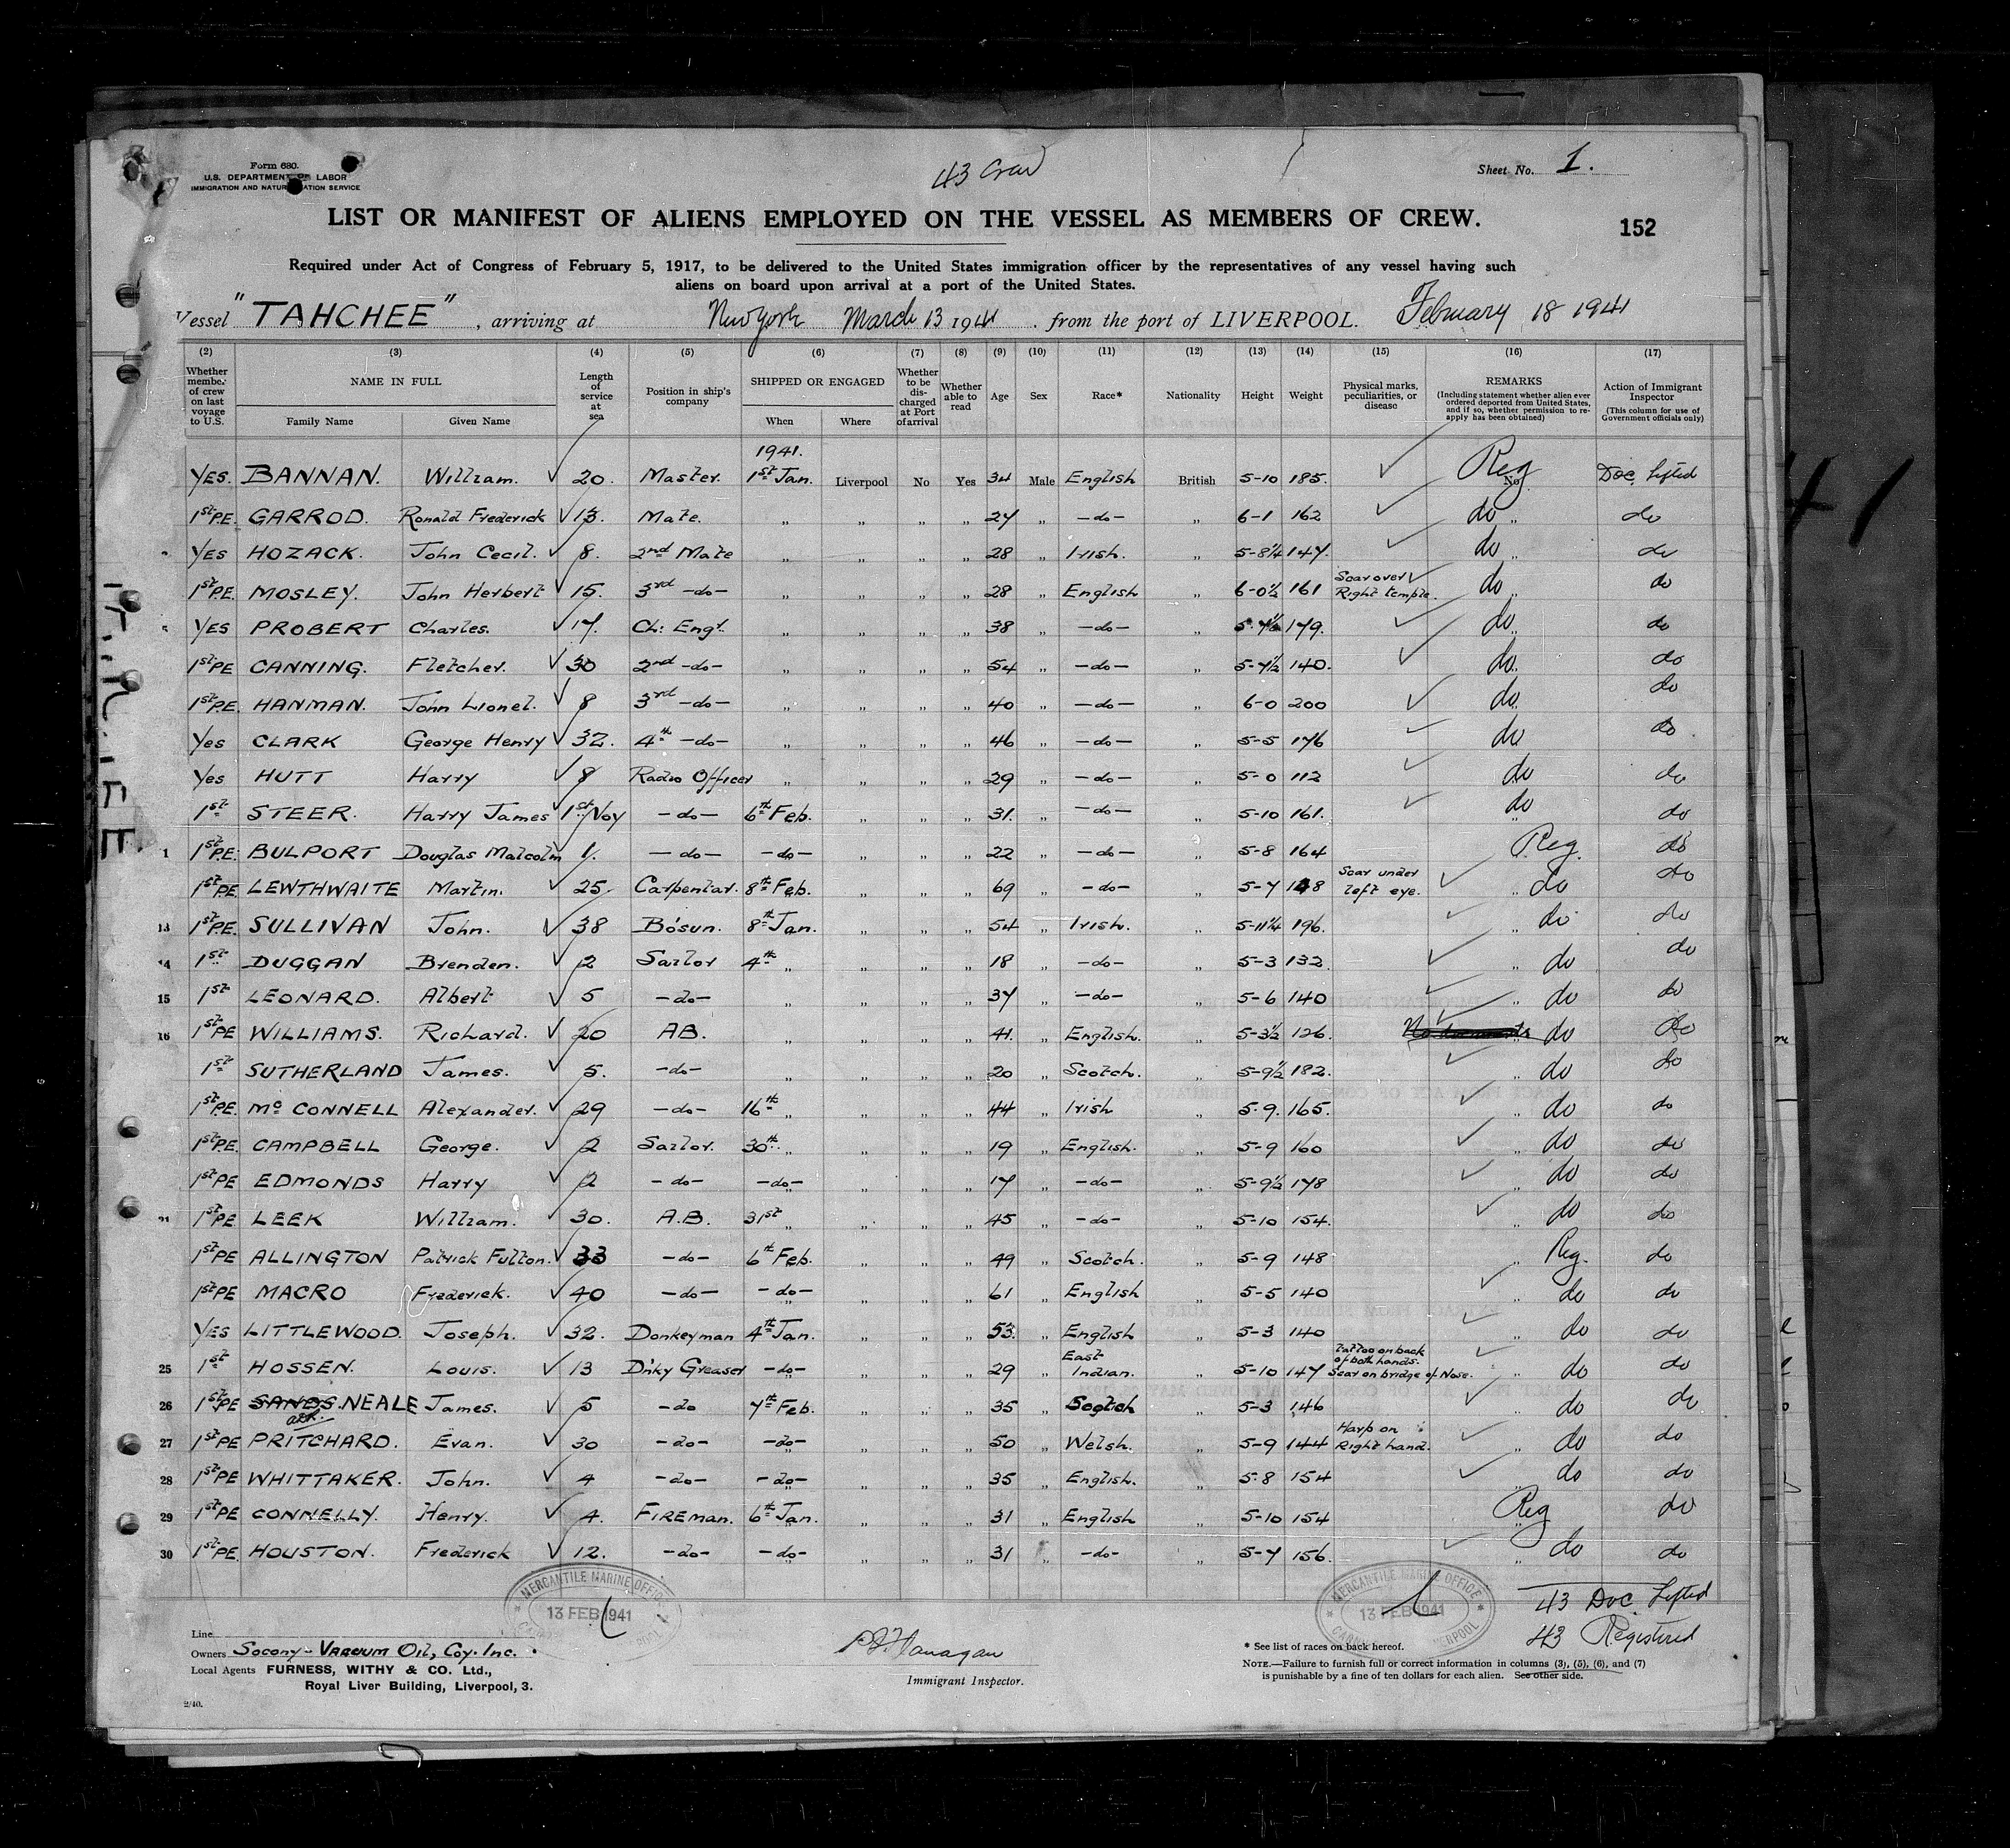 Form 680.
U.S. DEPARTMENT OF LABOR
IMMIGRATION AND NATURALIZATION SERVICE
43 Crew
Sheet No. 1.
LIST OR MANIFEST OF ALIENS EMPLOYED ON THE VESSEL AS MEMBERS OF CREW.
152
Required under Act of Congress of February 5, 1917, to be delivered to the United States immigration officer by the representatives of any vessel having such
aliens on board upon arrival at a port of the United States.
Vessel "TAHCHEE", arriving at New York March 13 1941. from the port of LIVERPOOL. February 18 1941
(2) (3) (4) (5) (6) (7) (8) (9) (10) (11) (12) (13) (14) (15) (16) (17)
Whether member of crew on last voyage to U.S. NAME IN FULL Family Name Given Name Length of service at sea Position in ship's company SHIPPED OR ENGAGED When Where Whether to be discharged at Port of arrival Whether able to read Age Sex Race* Nationality Height Weight Physical marks, peculiarities, or disease REMARKS (Including statement whether alien ever ordered deported from United States, and if so, whether permission to re-apply has been obtained) Action of Immigrant Inspector (This column for use of Government officials only)
1941.
YES. BANNAN. William. 20. Master. 1st Jan. Liverpool No Yes 34 Male English British 5-10 185. Reg No Doc. Lifted
1st P.E. GARROD. Ronald Frederick 13. Mate. „ „ „ „ 27 „ -do- „ 6-1 162 do „ do
YES HOZACK. John Cecil. 8. 2nd Mate „ „ „ „ 28 „ Irish. „ 5-8¼ 147. do „ do
1st P.E. MOSLEY. John Herbert 15. 3rd -do- „ „ „ „ 28 „ English „ 6-0½ 161 Scar over Right temple. do „ do
5 YES PROBERT Charles. 17. Ch: Engr. „ „ „ „ 38 „ -do- „ 5-7½ 179. do „ do
1st PE CANNING. Fletcher. 30 2nd -do- „ „ „ „ 54 „ -do- „ 5-7½ 140. do „ do
1st P.E. HANMAN. John Lionel. 8 3rd -do- „ „ „ „ 40 „ -do- „ 6-0 200 do „ do
Yes CLARK George Henry 32. 4th -do- „ „ „ „ 46 „ -do- „ 5-5 176 do „ do
Yes HUTT Harry 8 Radio Officer „ „ „ „ 29 „ -do- „ 5-0 112 do do
1st STEER. Harry James 1st Voy -do- 6th Feb. „ „ „ 31. „ -do- „ 5-10 161. do „ do
1st P.E. BULPORT Douglas Malcolm 1. -do- -do- „ „ „ 22 „ -do- „ 5-8 164 Reg. do
1st P.E. LEWTHWAITE Martin. 25. Carpenter. 8th Feb. „ „ „ 69 „ -do- „ 5-7 Scar under left eye. „ do do
13 1st P.E. SULLIVAN John. 38 Bosun. 8th Jan. „ „ „ 54 „ Irish. „ 5-11¼ 196. „ do do
14 1st DUGGAN Brenden. 2 Sailor 4th „ „ „ „ 18 „ -do- „ 5-3 132. „ do do
15 1st LEONARD. Albert 5 -do- „ „ „ „ 37 „ -do- „ 5-6 140 „ do do
16 1st PE WILLIAMS. Richard. 20 AB. „ „ „ „ 41. „ English. „ 5-3½ 126. do do
1st SUTHERLAND James. 5. -do- „ „ „ „ 20 „ Scotch. „ 5-9½ 182. „ do do
1st P.E. McCONNELL Alexander. 29 -do- 16th „ „ „ „ 44 „ Irish „ 5-9. 165. „ do do
1st P.E. CAMPBELL George. 2 Sailor. 30th „ „ „ „ 19 „ English. „ 5-9 160 „ do do
1st PE EDMONDS Harry 2 -do- -do- „ „ „ 17 „ -do- „ 5-9½ 178 „ do do
21 1st PE LEEK William. 30. A.B. 31st „ „ „ „ 45 „ -do- „ 5-10 154. „ do do
1st PE ALLINGTON Patrick Fulton. 33 -do- 6th Feb. „ „ „ 49 „ Scotch. „ 5-9 148 „ Reg. do
1st PE MACRO Frederick. 40 -do- -do- „ „ „ 61 „ English „ 5-5 140 „ do do
YES LITTLEWOOD. Joseph. 32. Donkeyman 4th Jan. „ „ „ 53. „ English „ 5-3 140 „ do do
25 1st HOSSEN. Louis. 13 D'nky Greaser -do- „ „ „ 29 „ East Indian. „ 5-10 147 Tattoo on back of both hands. Scar on bridge of Nose. do do
26 1st PE SANDS. NEALE James. 5 -do 7th Feb. „ „ „ 35 „ Scotch „ 5-3 146 „ do do
27 1st PE PRITCHARD. Evan. 30 -do- -do- „ „ „ 50 „ Welsh. „ 5-9 144 Harp on Right hand. „ do do
28 1st PE WHITTAKER. John. 4 -do- -do- „ „ „ 35 „ English. „ 5-8 154 „ do do
29 1st PE CONNELLY. Henry. 4. FIREman. 6th Jan. „ „ „ 31 „ English „ 5-10 154 Reg „ do
30 1st P.E. HOUSTON. Frederick 12. -do- -do- „ „ „ 31 „ -do- „ 5-7 156. „ do do
MERCANTILE MARINE OFFICE
13 FEB 1941
MERCANTILE MARINE OFFICE
13 FEB 1941
LIVERPOOL
43 Doc. Lifted
43 Registered
Line
Owners Socony-Vacuum Oil, Coy. Inc.
Local Agents FURNESS, WITHY & CO. Ltd.,
Royal Liver Building, Liverpool, 3.
2/40.
Flanagan
Immigrant Inspector.
* See list of races on back hereof.
NOTE.—Failure to furnish full or correct information in columns (3), (5), (6), and (7)
is punishable by a fine of ten dollars for each alien. See other side.